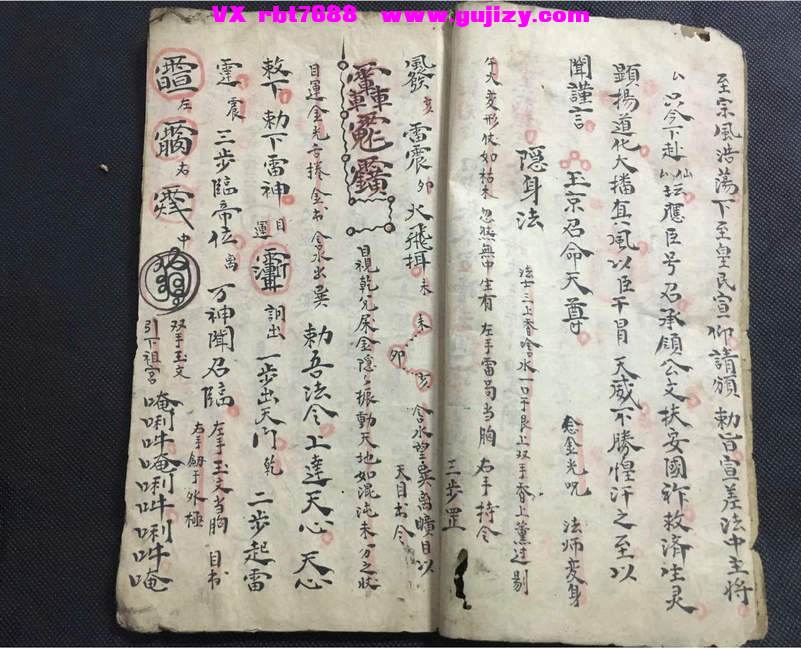 VX rbt7688 www.gujizy.com
至宗風浩蕩下至皇民宣仰請頒勅旨宣差法中主将
只今下赴仙坛應臣号召承領公文扶安國祚救済生灵
顕揚道化大播真風以臣干冒天威不勝惶汗之至以
聞謹言 玉京召命天尊 念金光呪 法師变身
隠身法 法士三上香含水一口于艮上双手香上薰过
午大变形伏如枯木忽然無中生有左手雷局当胸右手持令
三步罡
風發亥雷震卯火飛 未 未 亥 卯 含水望巽离曠目以
天目书令
目視乾兑 金隐隐振動天地如混沌未分之状
目運金光 捲金书含水出巽 勅吾法令上達天心天心
敕下勅下雷神 目運 訶出一步出天门乾二步起雷
霆震三步臨帝位离万神聞召臨 左手玉文当胸目书
右手劍于外極
左 右 中 双手玉文
引下祖宫 唵唎吽唵唎吽唎吽唵